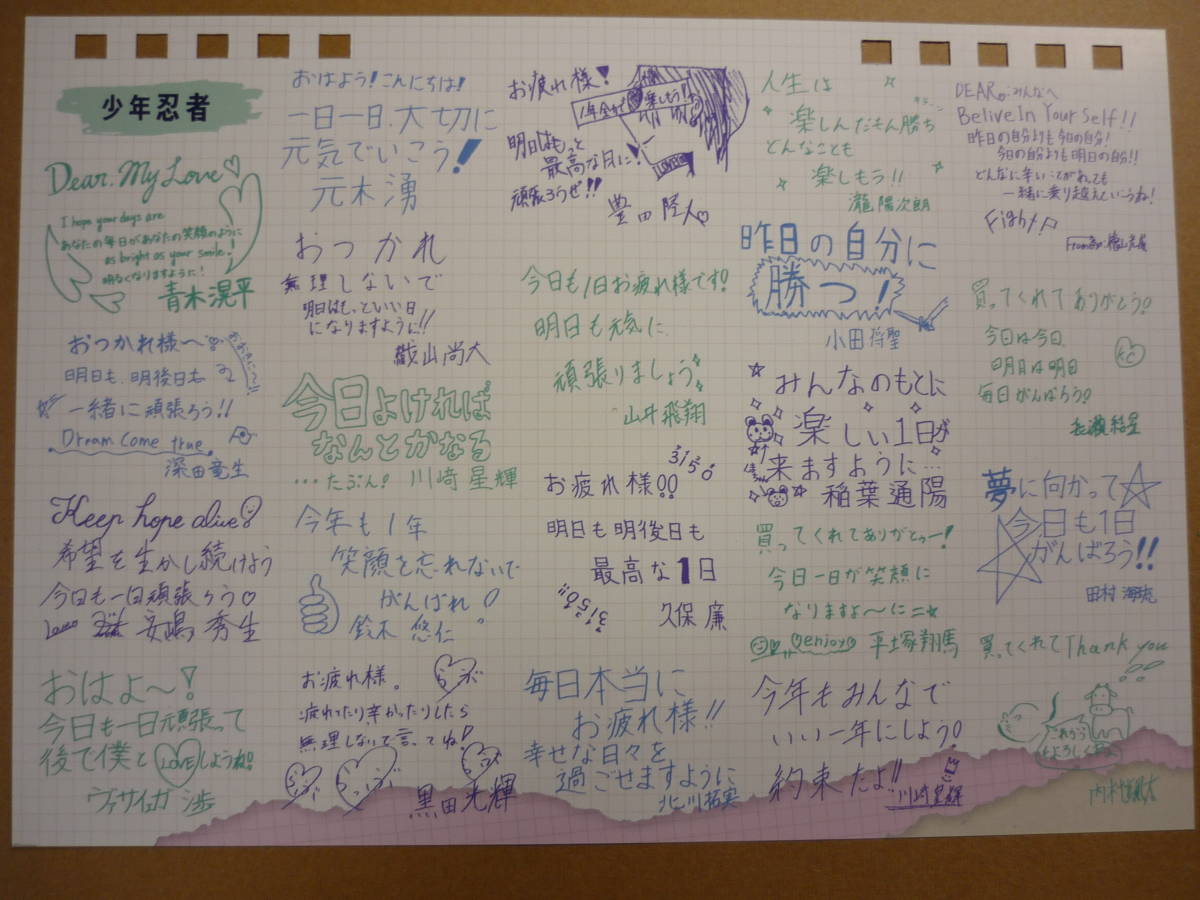 少年忍者
Dear. My Love♡
I hope your days are
あなたの毎日があなたの笑顔のように
as bright as your smile!
明るくなりますように!
青木滉平
おつかれ様〜
明日も、明後日も
一緒に頑張ろう!!
Dream come true
深田竜生
Keep hope alive
希望を生かし続けよう
今日も一日頑張ろう♡
安嶋 秀生
おはよ〜!
今日も一日頑張って
後で僕と LOVE しようね!
ヴァサイェガ 渉
おはよう!こんにちは!
一日一日、大切に
元気でいこう!
元木湧
おつかれ
無理しないで
明日はもっといい日
になりますように!!
織山尚大
今日よければ
なんとかなる
…たぶん! 川﨑星輝
今年も1年
笑顔を忘れないで
がんばれ!
鈴木 悠仁
お疲れ様。
疲れたり、辛かったりしたら
無理しないで言ってね!
黒田光輝
お疲れ様!
楽しもう!!
明日はもっと
最高な日に!
頑張ろうぜ!!
豊田 陸人♡
今日も1日お疲れ様です!
明日も元気に
頑張りましょう
山井飛翔
3150
お疲れ様!!
明日も明後日も
最高な1日
3150!!
久保 廉
毎日本当に
お疲れ様!!
幸せな日々を
過ごせますように
北川拓実
人生は
楽しんだもん勝ち
どんなことも
楽しもう!!
瀧 陽次朗
昨日の自分に
勝つ!
小田将聖
みんなのもとに
楽しい1日が
来ますように…
稲葉通陽
買ってくれてありがとぅー!
今日一日が笑顔に
なりますよ〜に
enjoy 平塚翔馬
今年もみんなで
いい一年にしよう!
約束だよ!!
川﨑皇輝
DEAR みんなへ
Belive In Your Self!!
昨日の自分よりも今日の自分!
今日の自分よりも明日の自分!!
どんなに辛いことがあれても
一緒に乗り越えていこうね!
Fight!
From
買ってくれてありがとう!
今日は今日
明日は明日
毎日がんばろう!
夢に向かって
今日も1日
がんばろう!!
田村 海琉
買ってくれて Thank you
これから
よろしくね
内村颯太